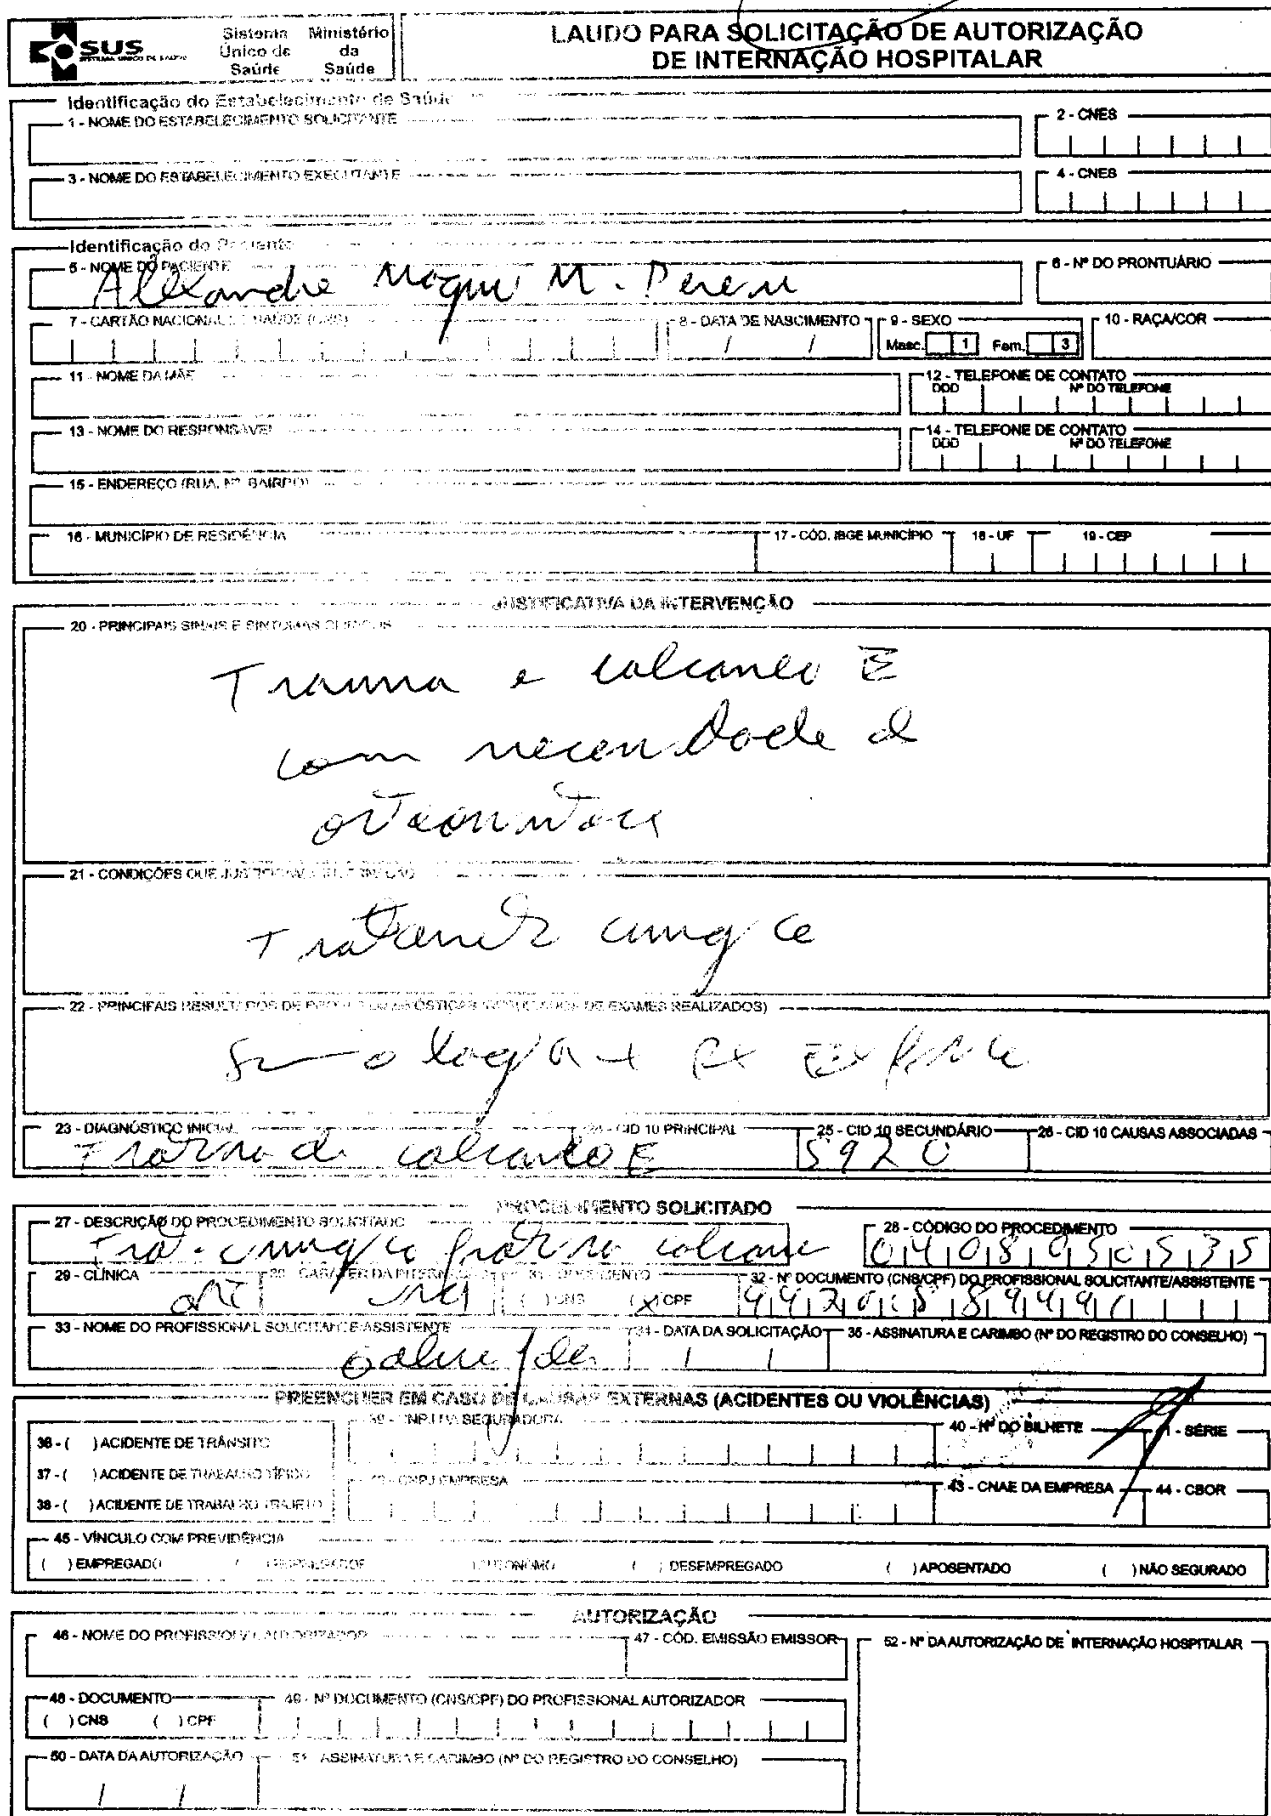 SUS
SISTEMA ÚNICO DE SAÚDE
Sistema Único de Saúde
Ministério da Saúde
LAUDO PARA SOLICITAÇÃO DE AUTORIZAÇÃO
DE INTERNAÇÃO HOSPITALAR
Identificação do Estabelecimento de Saúde
1 - NOME DO ESTABELECIMENTO SOLICITANTE
2 - CNES
3 - NOME DO ESTABELECIMENTO EXECUTANTE
4 - CNES
Identificação do Paciente
5 - NOME DO PACIENTE
6 - Nº DO PRONTUÁRIO
Alexandre M.
7 - CARTÃO NACIONAL DE SAÚDE (CNS)
8 - DATA DE NASCIMENTO
9 - SEXO
10 - RAÇA/COR
/ /
Masc. 1 Fem. 3
11 - NOME DA MÃE
12 - TELEFONE DE CONTATO
DDD Nº DO TELEFONE
13 - NOME DO RESPONSÁVEL
14 - TELEFONE DE CONTATO
DDD Nº DO TELEFONE
15 - ENDEREÇO (RUA, Nº, BAIRRO)
16 - MUNICÍPIO DE RESIDÊNCIA
17 - CÓD. IBGE MUNICÍPIO
18 - UF
19 - CEP
JUSTIFICATIVA DA INTERVENÇÃO
20 - PRINCIPAIS SINAIS E SINTOMAS CLÍNICOS
Trauma e calcaneo E
com
21 - CONDIÇÕES QUE JUSTIFICAM A INTERNAÇÃO
22 - PRINCIPAIS RESULTADOS DE PROVAS DIAGNÓSTICAS (RESULTADOS DE EXAMES REALIZADOS)
23 - DIAGNÓSTICO INICIAL
24 - CID 10 PRINCIPAL
25 - CID 10 SECUNDÁRIO
26 - CID 10 CAUSAS ASSOCIADAS
calcaneo E
S920
PROCEDIMENTO SOLICITADO
27 - DESCRIÇÃO DO PROCEDIMENTO SOLICITADO
28 - CÓDIGO DO PROCEDIMENTO
0408050535
29 - CLÍNICA
30 - CARÁTER DA INTERNAÇÃO
31 - DOCUMENTO
32 - Nº DOCUMENTO (CNS/CPF) DO PROFISSIONAL SOLICITANTE/ASSISTENTE
( ) CNS (X) CPF
33 - NOME DO PROFISSIONAL SOLICITANTE/ASSISTENTE
34 - DATA DA SOLICITAÇÃO
35 - ASSINATURA E CARIMBO (Nº DO REGISTRO DO CONSELHO)
PREENCHER EM CASO DE CAUSAS EXTERNAS (ACIDENTES OU VIOLÊNCIAS)
36 - ( ) ACIDENTE DE TRÂNSITO
39 - CNPJ DA SEGURADORA
40 - Nº DO BILHETE
41 - SÉRIE
37 - ( ) ACIDENTE DE TRABALHO TÍPICO
42 - CNPJ EMPRESA
43 - CNAE DA EMPRESA
44 - CBOR
38 - ( ) ACIDENTE DE TRABALHO TRAJETO
45 - VÍNCULO COM PREVIDÊNCIA
( ) EMPREGADO ( ) EMPREGADOR ( ) AUTÔNOMO ( ) DESEMPREGADO ( ) APOSENTADO ( ) NÃO SEGURADO
AUTORIZAÇÃO
46 - NOME DO PROFISSIONAL AUTORIZADOR
47 - CÓD. EMISSÃO EMISSOR
52 - Nº DA AUTORIZAÇÃO DE INTERNAÇÃO HOSPITALAR
48 - DOCUMENTO
49 - Nº DOCUMENTO (CNS/CPF) DO PROFISSIONAL AUTORIZADOR
( ) CNS ( ) CPF
50 - DATA DA AUTORIZAÇÃO
51 - ASSINATURA E CARIMBO (Nº DO REGISTRO DO CONSELHO)
/ /